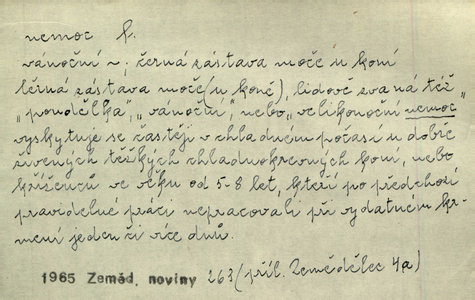 nemoc f.
vánoční ~: černá zástava moče u koní
Černá zástava moče (u koně), lidově zvaná též
„pondělka", „vánoční", nebo „velikonoční nemoc"
vyskytuje se častěji v chladném počasí u dobře
živených těžkých chladnokrevných koní, nebo
kříženců ve věku od 5-8 let, kteří po předchozí
pravidelné práci nepracovali při vydatném kr-
mení jeden či více dnů.
1965 Zeměd. noviny 263 (příl. Zemědělec 4a)